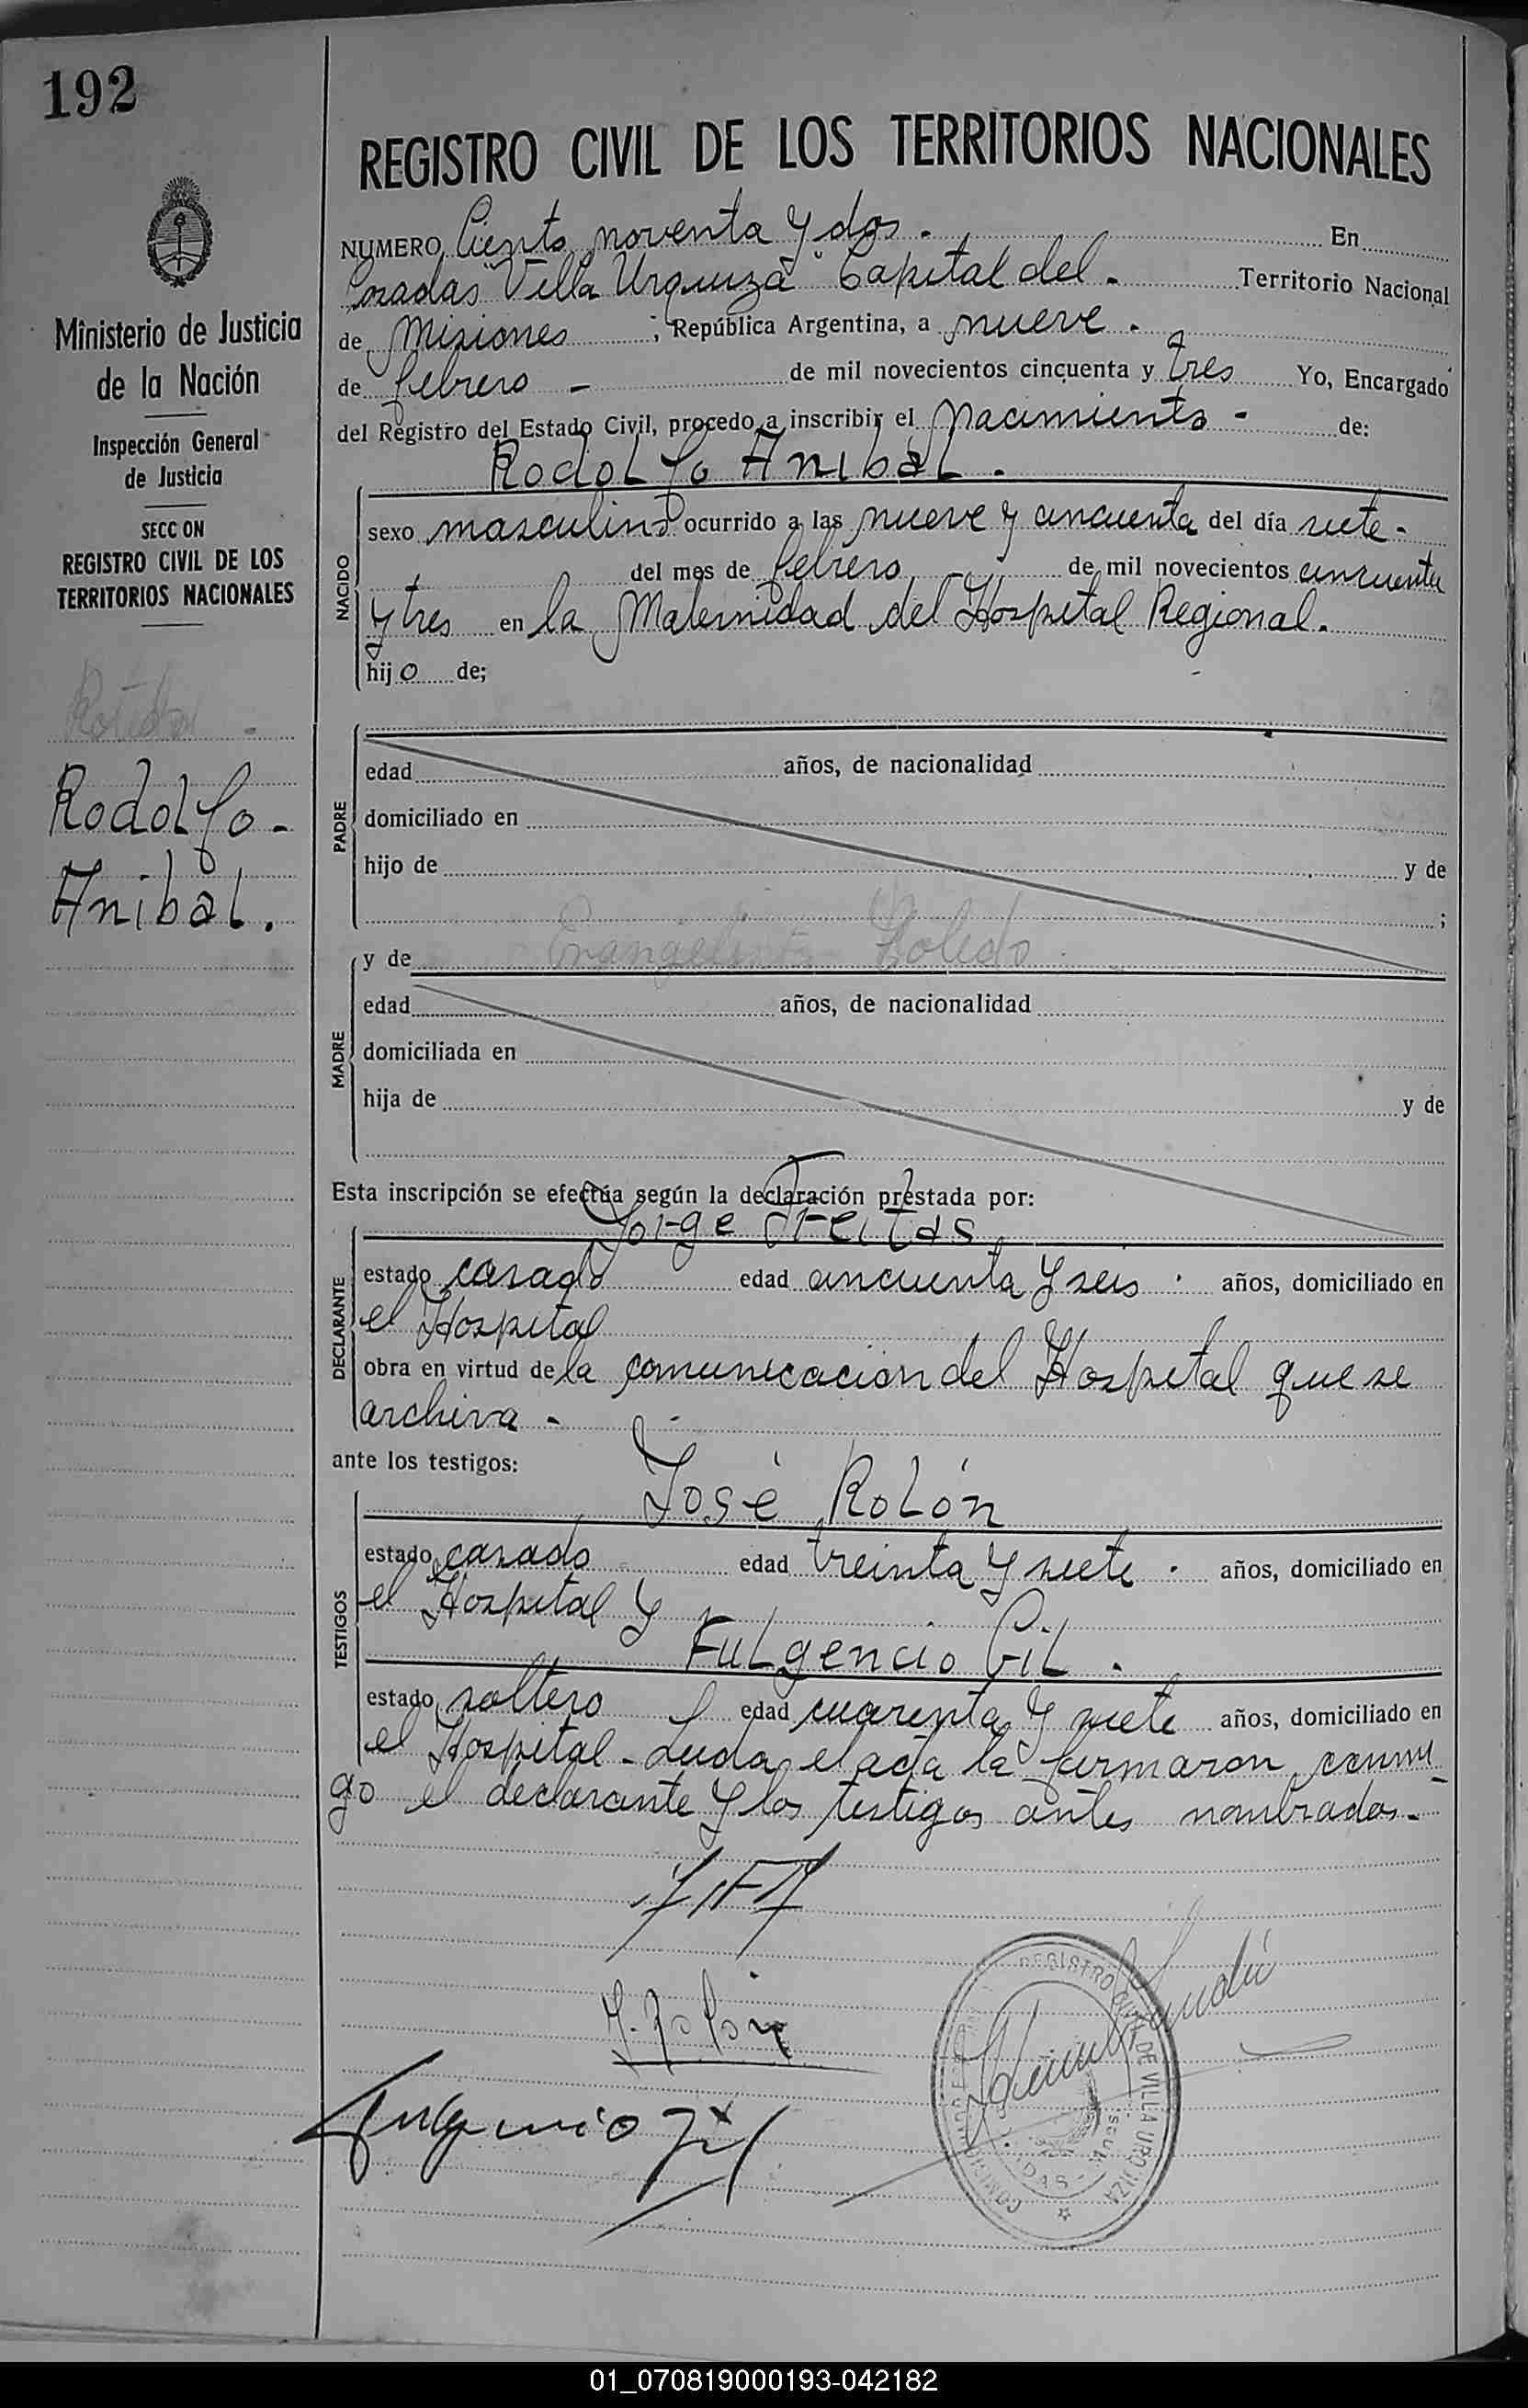 192
Ministerio de Justicia
de la Nación
Inspección General
de Justicia
SECC ON
REGISTRO CIVIL DE LOS
TERRITORIOS NACIONALES
Rodolfo -
Anibal.
REGISTRO CIVIL DE LOS TERRITORIOS NACIONALES
NUMERO Ciento noventa y dos. En
Posadas "Villa Urquiza" Capital del. Territorio Nacional
de Misiones ; República Argentina, a nueve.
de febrero - de mil novecientos cincuenta y tres Yo, Encargado
del Registro del Estado Civil, procedo a inscribir el Nacimiento - de:
Rodolfo Anibal.
NACIDO
sexo masculino ocurrido a las nueve y cincuenta del día siete.
del mes de febrero de mil novecientos cincuenta
y tres en la Maternidad del Hospital Regional.
hijo de;
PADRE
edad años, de nacionalidad
domiciliado en
hijo de y de
;
MADRE
y de Evangelista Toledo
edad años, de nacionalidad
domiciliada en
hija de y de
Esta inscripción se efectúa según la declaración prestada por:
Jorge Freitas
DECLARANTE
estado casado edad cincuenta y seis. años, domiciliado en
el Hospital
obra en virtud de la comunicación del Hospital que se
archiva -
ante los testigos:
José Rolón
TESTIGOS
estado casado edad treinta y siete. años, domiciliado en
el Hospital y
Fulgencio Gil.
estado soltero edad cuarenta y siete años, domiciliado en
el Hospital - Leida el acta la firmaron conmi
go el declarante y los testigos antes nombrados.-
J. Rolón
Fulgencio Gil
REGISTRO CIVIL DE VILLA URQUIZA
01_070819000193-042182